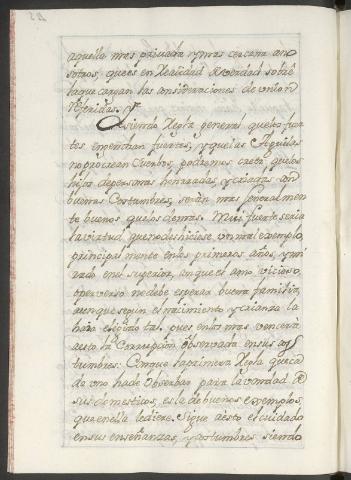 aquella mas privada y mas cercana anó
sotros, que es en Realidad de verdad sobre
laque cargan las consideraciones de unión
referidas.
Y siendo Regla general quelos fuer
tes engendran fuertes, y quelas Aguilas
no procrean Cuervos, podremos creer quelos
hijos depersonas honrradas, y criadas con
buenas Costumbres, serán mas Generalmen
te buenos quelos demas. Muy fuerte seria
la virtud quenodeshiciese un mal exemplo,
principalmente enlos primeros años, y mi
rado en el superior, conque el amo vicioso,
ó perverso no debe esperar buena familia,
aunque según el nacimiento y crianza la
haya elegido tal. pues enlos mas vencerá
aesto la Corrupción observada en sus cos
tumbres: Conque la primera Regla que ca
da uno hade Observar para la vondad de
sus domesticos, es la de buenos exemplos,
que en ella lediere. Sigue aesto el cuidado
en sus enseñanzas, y costumbres siendo